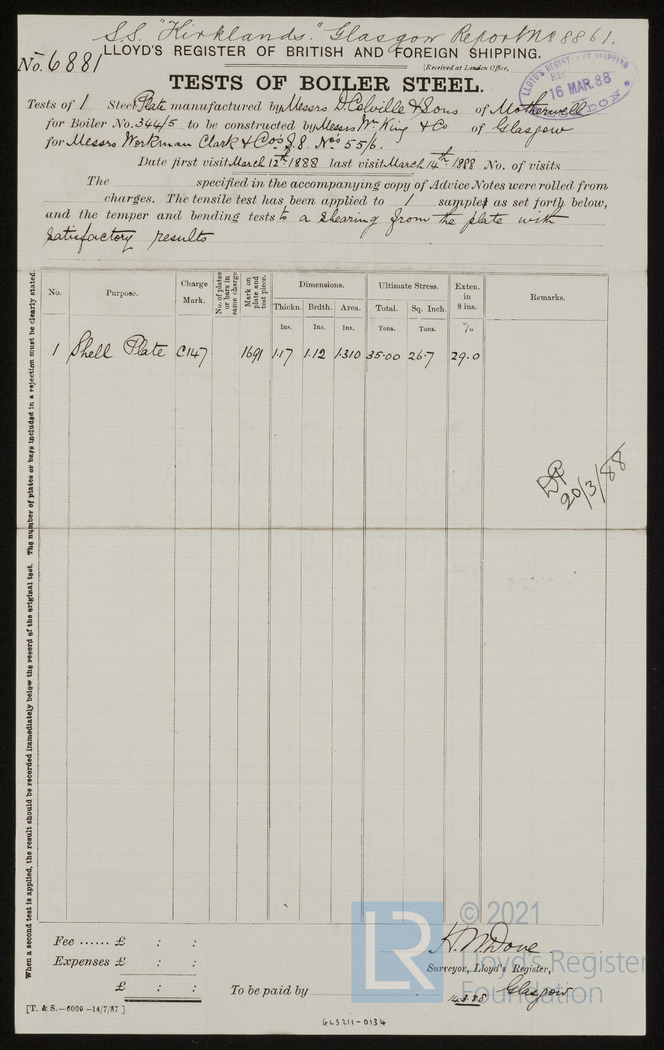 S.S. "Kirklands." Glasgow Report No 8861.
No. 6881
LLOYD'S REGISTER OF BRITISH AND FOREIGN SHIPPING.
(Received at London Office,
LLOYD'S REGIST SHIPPING
16 MAR.88
TESTS OF BOILER STEEL.
Tests of 1 Steel Plate manufactured by Messrs D. Colville & Sons of Motherwell
for Boiler No. 344/5 to be constructed by Messrs Wm King & Co of Glasgow
for Messrs Workman Clark & Co's S.S. Nos 55/6.
Date first visit March 12th 1888 last visit March 14th 1888 No. of visits
The specified in the accompanying copy of Advice Notes were rolled from
charges. The tensile test has been applied to 1 samples as set forth below,
and the temper and bending tests to a shearing from the plate with
satisfactory results
No.
Purpose.
Charge Mark.
No. of plates or bars in same charge
Mark on plate and test piece.
Dimensions.
Ultimate Stress.
Exten. in 8 ins.
Remarks.
Thickn. Brdth. Area. Total. Sq. Inch.
Ins. Ins. Ins. Tons. Tons. %
1 Shell Plate C147 1691 1.17 1.12 1.310 35.00 26.7 29.0
20/3/88
When a second test is applied, the result should be recorded immediately below the record of the original test. The number of plates or bars included in a rejection must be clearly stated.
Fee ...... £ : :
Expenses £ : :
£ : :
To be paid by
Surveyor, Lloyd's Register,
Glasgow
14.3.88
[T. & S.—6000—14/7/87.]
GLS211-0134
LR
© 2021
Lloyd's Register
Foundation